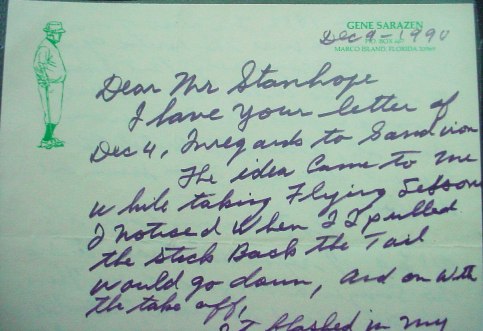 GENE SARAZEN
P.O. BOX 667
MARCO ISLAND, FLORIDA 33969
Dec 9 - 1990
Dear Mr Stanhope
I have your letter of
Dec 4, Inregards to Sand iron
The idea Came to me
while taking Flying Lesson
I notised when I pulled
the stick Back the Tail
would go down, and on with
the take off,
IT flashed in my